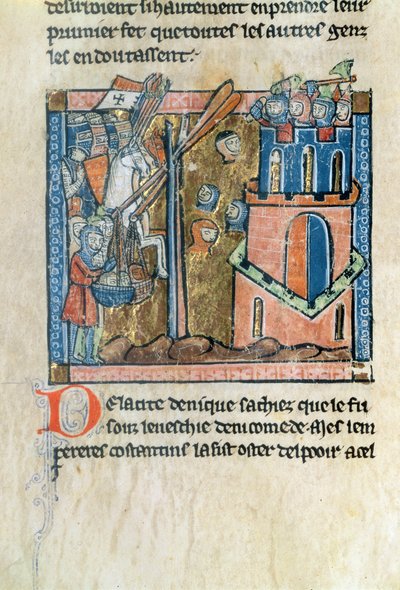 desirroient si hautement enprendre leur
prumier fet que toutes les autres genz
les en doutassent.
De la cite de nique sachiez que le fu
souz leveschie de nicomede. Mes lem
pereres costantins la fist oster del pooir a cel